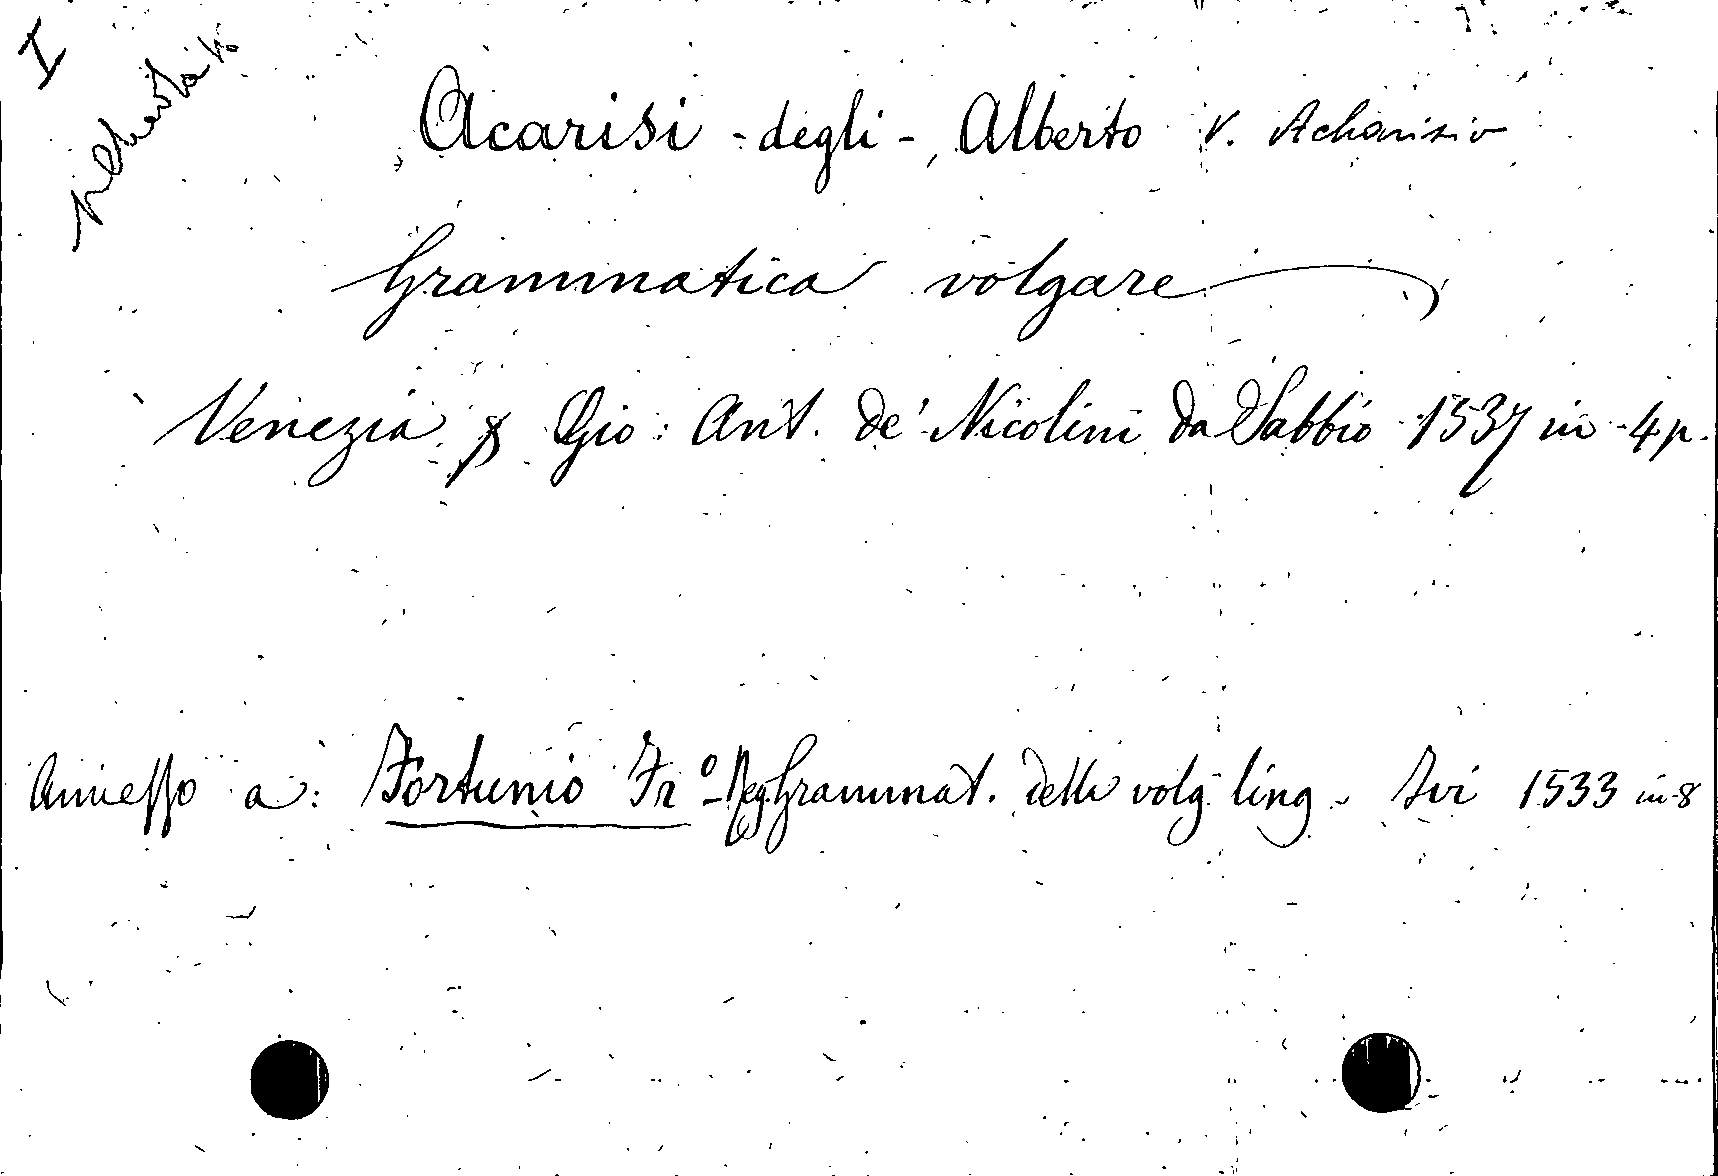 I
Acarisi - degli - Alberto v. Acharisio
Grammatica volgare
Venezia p Gio: Ant. de' Nicolini da Sabbio 1537 in 4 p.
Annesso a: Fortunio Frº - Reg Grammat. della volg. ling - Ivi 1533 in-8